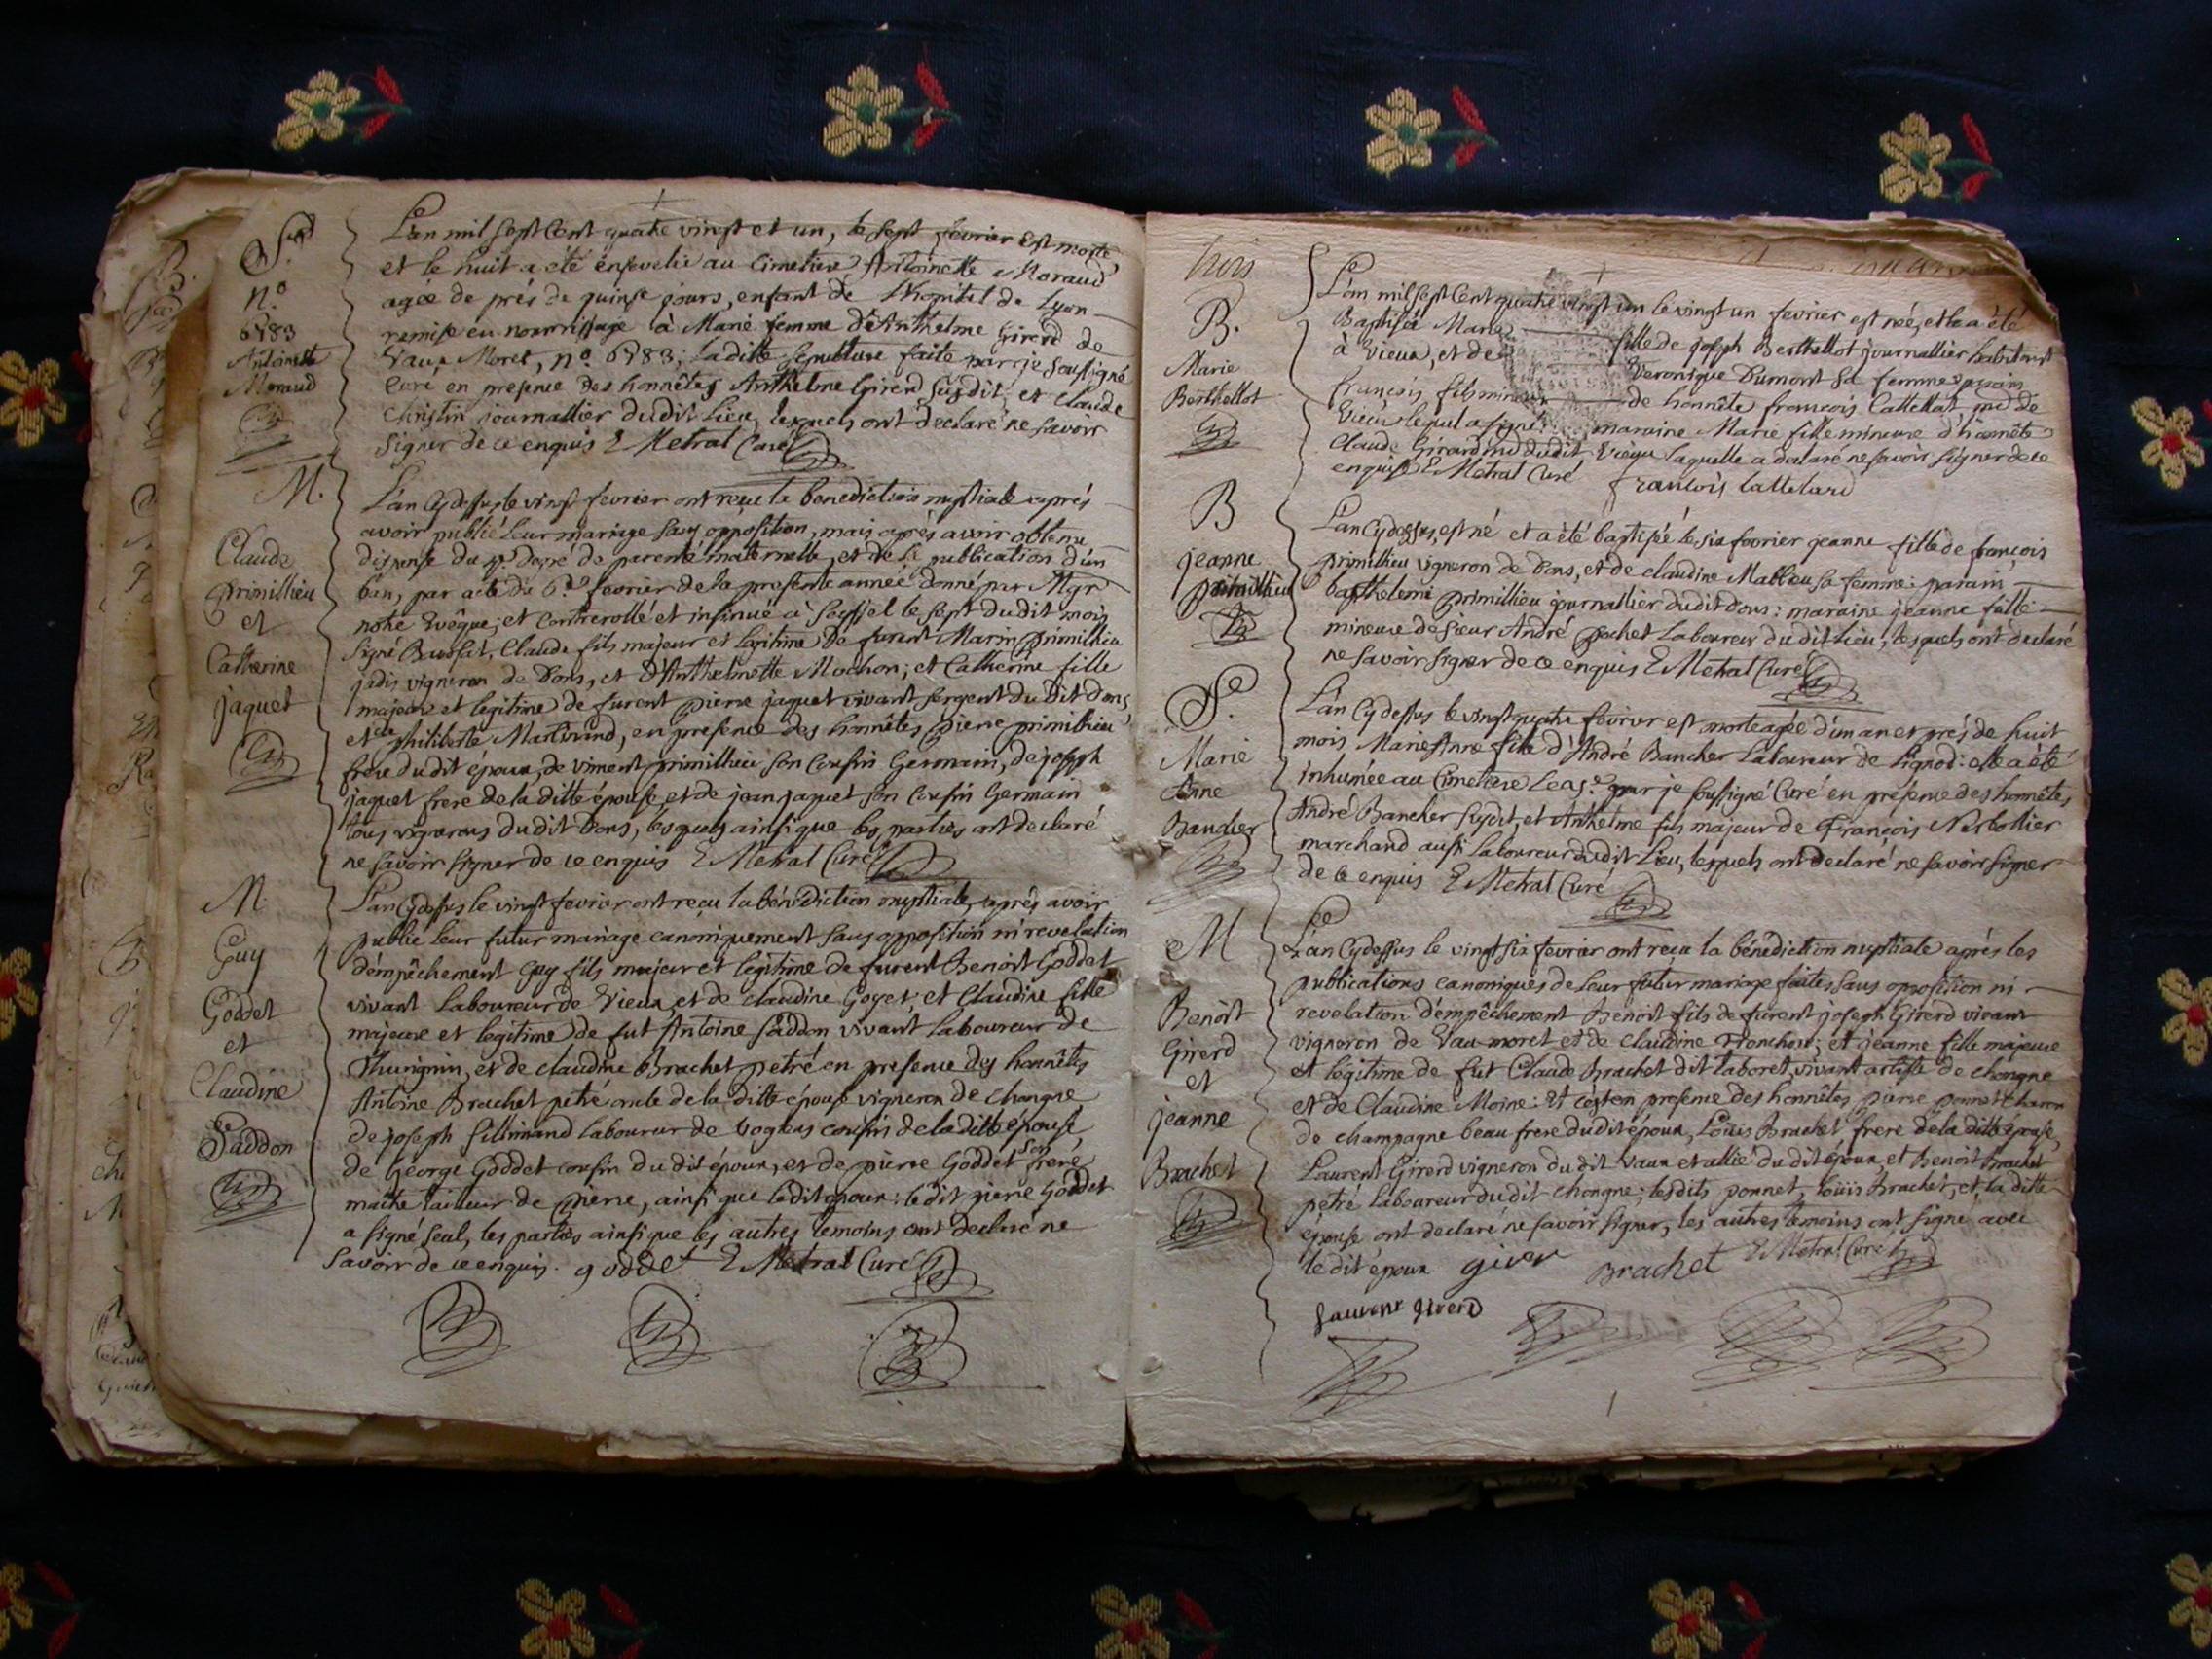 S.re
n.o
6783
Antoinette
Moraud
L'an mil sept Cent quatre vingt et un, le sept fevrier est morte
et le huit a été ensevelie au Cimetiere Antoinette Moraud
agée de prés de quinse jours, enfant de l'hopital de Lyon
remise en nourrissage à Marie femme d'Anthelme Girerd de
Vaux Moret, n.o 6783; la ditte sepulture faite par je soussigné
Curé en presence des honnêtes Anthelme Girerd susdit, et Claude
Christin journallier du dit Lieu, lesquels ont declaré ne savoir
signer de ce enquis E Metral Curé
M.
Claude
primillieu
et
Catherine
jaquet
L'an Cydessus le vingt fevrier ont reçu la benediction nuptiale aprés
avoir publié Leur mariage sans opposition, mais aprés avoir obtenu
dispense du 4.e degré de parenté maternelle, et de la publication d'un
ban, par acte du 6.e fevrier de la presente année donné par Mgr
notre Evêque, et Controrollé et insinué à Seyssel le sept du dit mois
signé Claude fils majeur et legitime de furent Marin primillieu
jadis vigneron de Dons, et d'Anthelmette Mochon; et Catherine fille
majeure et legitime de furent pierre jaquet vivant sergent du dit dons
et de philiberte en presence des honnêtes pierre primillieu
frere du dit époux, de viment primillieu son Cousin Germain, de joseph
jaquet frere de la ditte épouse, et de jean jaquet son Cousin Germain
tous vignerons du dit Dons, lesquels ainsi que les parties ont declaré
ne savoir signer de ce enquis E Metral Curé
M.
Guy
Goddet
et
Claudine
Saddon
L'an Cydessus le vingt fevrier ont reçu la bénédiction nuptiale, aprés avoir
publié leur futur mariage canoniquement sans opposition ni revelation
d'empêchement Guy fils majeur et légitime de furent Benoit Goddet
vivant Laboureur de Vieux, et de claudine Goyet, et Claudine fille
majeure et legitime de fut Antoine Saddon vivant Laboureur de
Thurignin, et de claudine Brachet petré en presence des honnêtes
Antoine Brachet petré oncle de la ditte épouse vigneron de Chongne
de joseph laboureur de vogens cousin de la ditte épouse
de George Goddet cousin du dit époux, et de pierre Goddet son frere
maitre tailleur de pierre, ainsi que ledit époux: ledit pierre Goddet
a signé seul, les parties ainsi que les autres temoins ont declaré ne
savoir de ce enquis. goddet E Metral Curé
trois
B.
Marie
Berthellot
L'an mil sept Cent quatre vingt un le vingt un fevrier est née, et a été
Baptisée Marie fille de joseph Berthellot journallier habitant
à Vieux, et de Veronique Dumont sa femme: parain
françois fils mineur de honnête françois Cattellat, md de
Vieu lequel a signé maraine Marie fille mineure d'honnête
Claude Girard md du dit Vieu laquelle a declaré ne savoir signer de ce
enquise E Metral Curé françois Cattelard
B
jeanne
primillieu
L'an Cydessus, est né et a été baptisée le six fevrier jeanne fille de françois
primillieu vigneron de Dons, et de claudine Mathieu sa femme: parain
barthelemi primillieu journallier du dit dons: maraine jeanne fille
mineure de sieur André pochet Laboureur du dit lieu, lesquels ont declaré
ne savoir signer de ce enquis E Metral Curé
S.
Marie
Anne
Bancher
L'an Cydessus le vingt quatre fevrier est morte agée d'un an et prés de huit
mois Marieanne fille d'André Bancher Laboureur de Lignod: elle a été
inhumée au Cimetiere par je soussigné Curé en présence des honnêtes
André Bancher susdit, et Anthelme fils majeur de François Nerbollier
marchand aussi laboureur du dit Lieu, lesquels ont declaré ne savoir signer
de ce enquis E Metral Curé
M
Benoît
Girerd
et
jeanne
Brachet
L'an Cydessus le vingt six fevrier ont reçu la bénédiction nuptiale aprés les
publications canoniques de leur futur mariage faites sans oposition ni
revelation d'empêchement Benoit fils de furent joseph Girerd vivant
vigneron de Vau moret et de claudine Tronchon; et jeanne fille majeure
et légitime de fut Claude Brachet dit taboret, vivant artiste de chongne
et de Claudine Moine: et ce en presence des honnêtes pierre ponnet charon
de champagne beau frere du dit époux, Loüis Brachet frere de la ditte épouse,
Laurent Girerd vigneron du dit Vaux et allié du dit époux, et Benoit Brachet
petré laboureur du dit chongne; lesdits ponnet, Loüis Brachet, et la ditte
épouse ont declaré ne savoir signer, les autres temoins ont signé avec
le dit époux girer brachet E Metral Curé
Laurent girerd